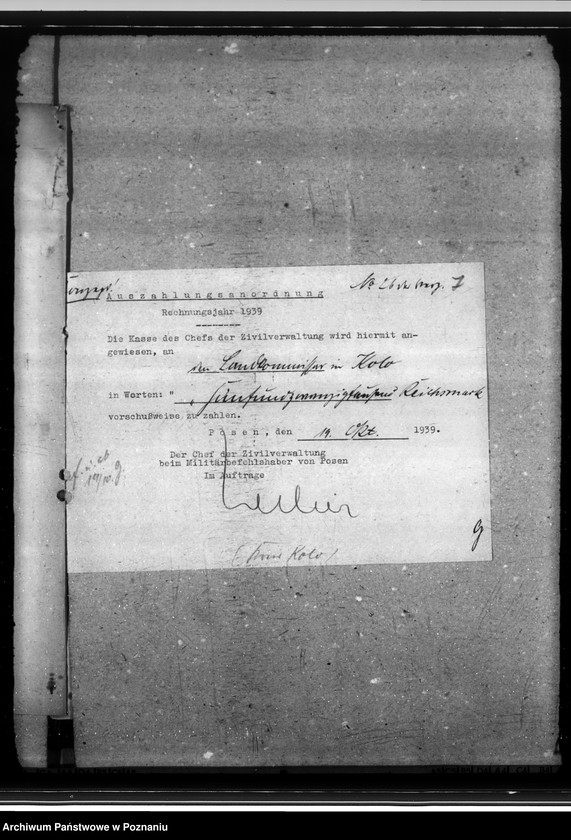 Auszahlungsanordnung
Rechnungsjahr 1939
Die Kasse des Chefs der Zivilverwaltung wird hiermit an-
gewiesen, an
den Landkommissar in Kolo
in Worten: " Fünfundzwanzigtausend Reichsmark
vorschußweise zu zahlen.
Posen, den 19. Okt. 1939.
Der Chef der Zivilverwaltung
beim Militärbefehlshaber von Posen
Im Auftrage
(Kreis Kolo)
Archiwum Państwowe w Poznaniu